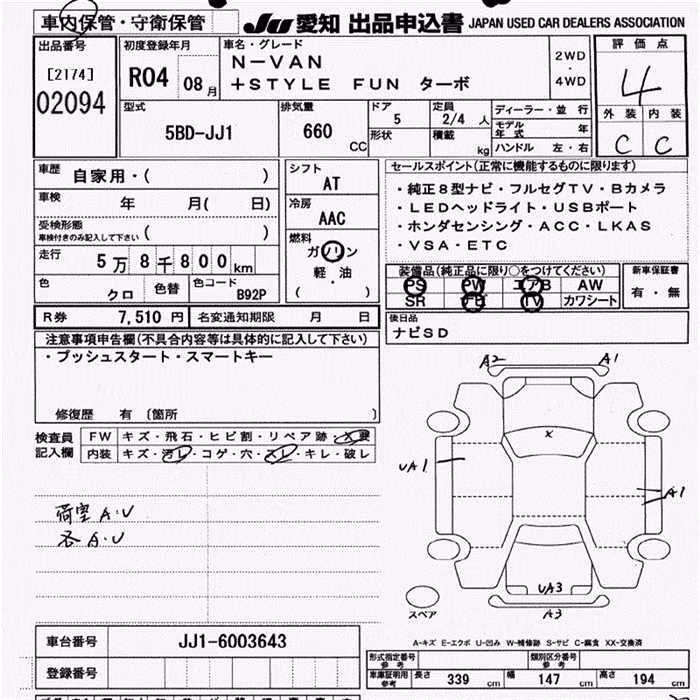 車内保管・守衛保管 JU 愛知 出品申込書 JAPAN USED CAR DEALERS ASSOCIATION
出品番号 初度登録年月 車名・グレード 評価点
[2174] R04 08月 N-VAN 2WD・4WD 4
02094 +STYLE FUN ターボ
外装 内装
C C
型式 排気量 ドア 定員 ディーラー・並行
5BD-JJ1 660 CC 5 2/4人 モデル年式 年
形状 積載 kg ハンドル 左・右
車歴 自家用・( ) シフト AT
車検 年 月( 日) 冷房 AAC
受検形態 車検付きのみ記入して下さい ( ) 燃料 ガソリン
走行 5万8千800km 軽・油
色 クロ 色替 色コード B92P ( )
R券 7,510円 名変通知期限 月 日
セールスポイント(正常に機能するものに限ります)
・純正8型ナビ・フルセグTV・Bカメラ
・LEDヘッドライト・USBポート
・ホンダセンシング・ACC・LKAS
・VSA・ETC
装備品(純正品に限り○をつけてください) 新車保証書
PS PW エアB AW 有・無
SR ナビ TV カワシート
後日品
ナビSD
注意事項申告欄(不具合内容等は具体的に記入して下さい)
・プッシュスタート・スマートキー
修復歴 有 〔箇所 〕
検査員記入欄 FW キズ・飛石・ヒビ割・リペア跡・X要
内装 キズ・汚レ・コゲ・穴・スレ・キレ・破レ
荷室 A.U
各 A.U
A2 A1
X
UA1
A1
UA3
A3
スペア
A-キズ E-エクボ U-凹み W-補修跡 S-サビ C-腐食 XX-交換済
車台番号 JJ1-6003643
登録番号
形式指定番号 参考 類別区分番号 参考
車庫証明用 参考 長さ 339 cm 幅 147 cm 高さ 194 cm